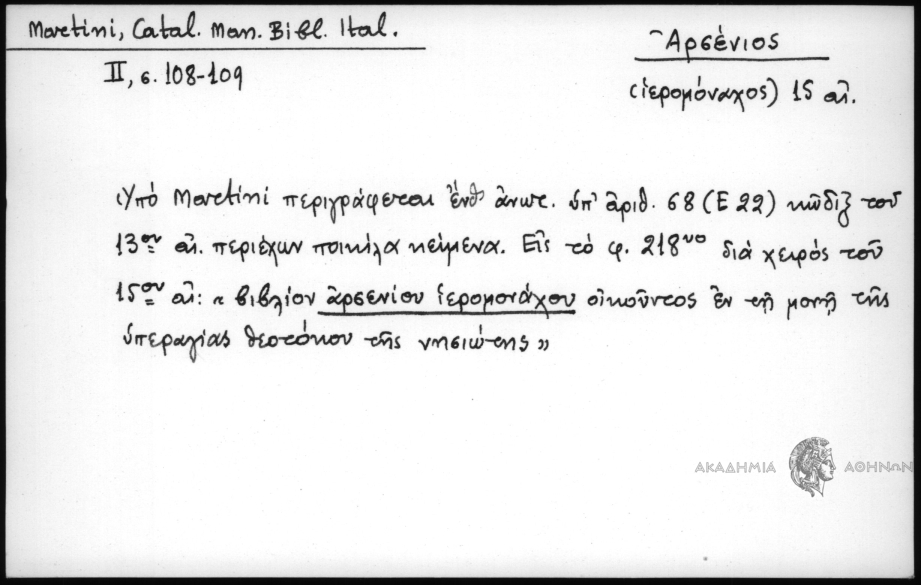 Martini, Catal. Man. Bibl. Ital.
II, σ. 108-109
Ἀρσένιος
(ἱερομόναχος) 15 αἰ.
Ὑπό Martini περιγράφεται ἔνθ' ἄνωτ. ὑπ' ἀριθ. 68 (E 22) κῶδιξ τοῦ
13ου αἰ. περιέχων ποικίλα κείμενα. Εἰς τό φ. 218νο διά χειρός τοῦ
15ου αἰ: « βιβλίον ἀρσενίου ἱερομονάχου οἰκοῦντος ἐν τῇ μονῇ τῆς
ὑπεραγίας θεοτόκου τῆς νησιώτης »
ΑΚΑΔΗΜΙΑ ΑΘΗΝΩΝ